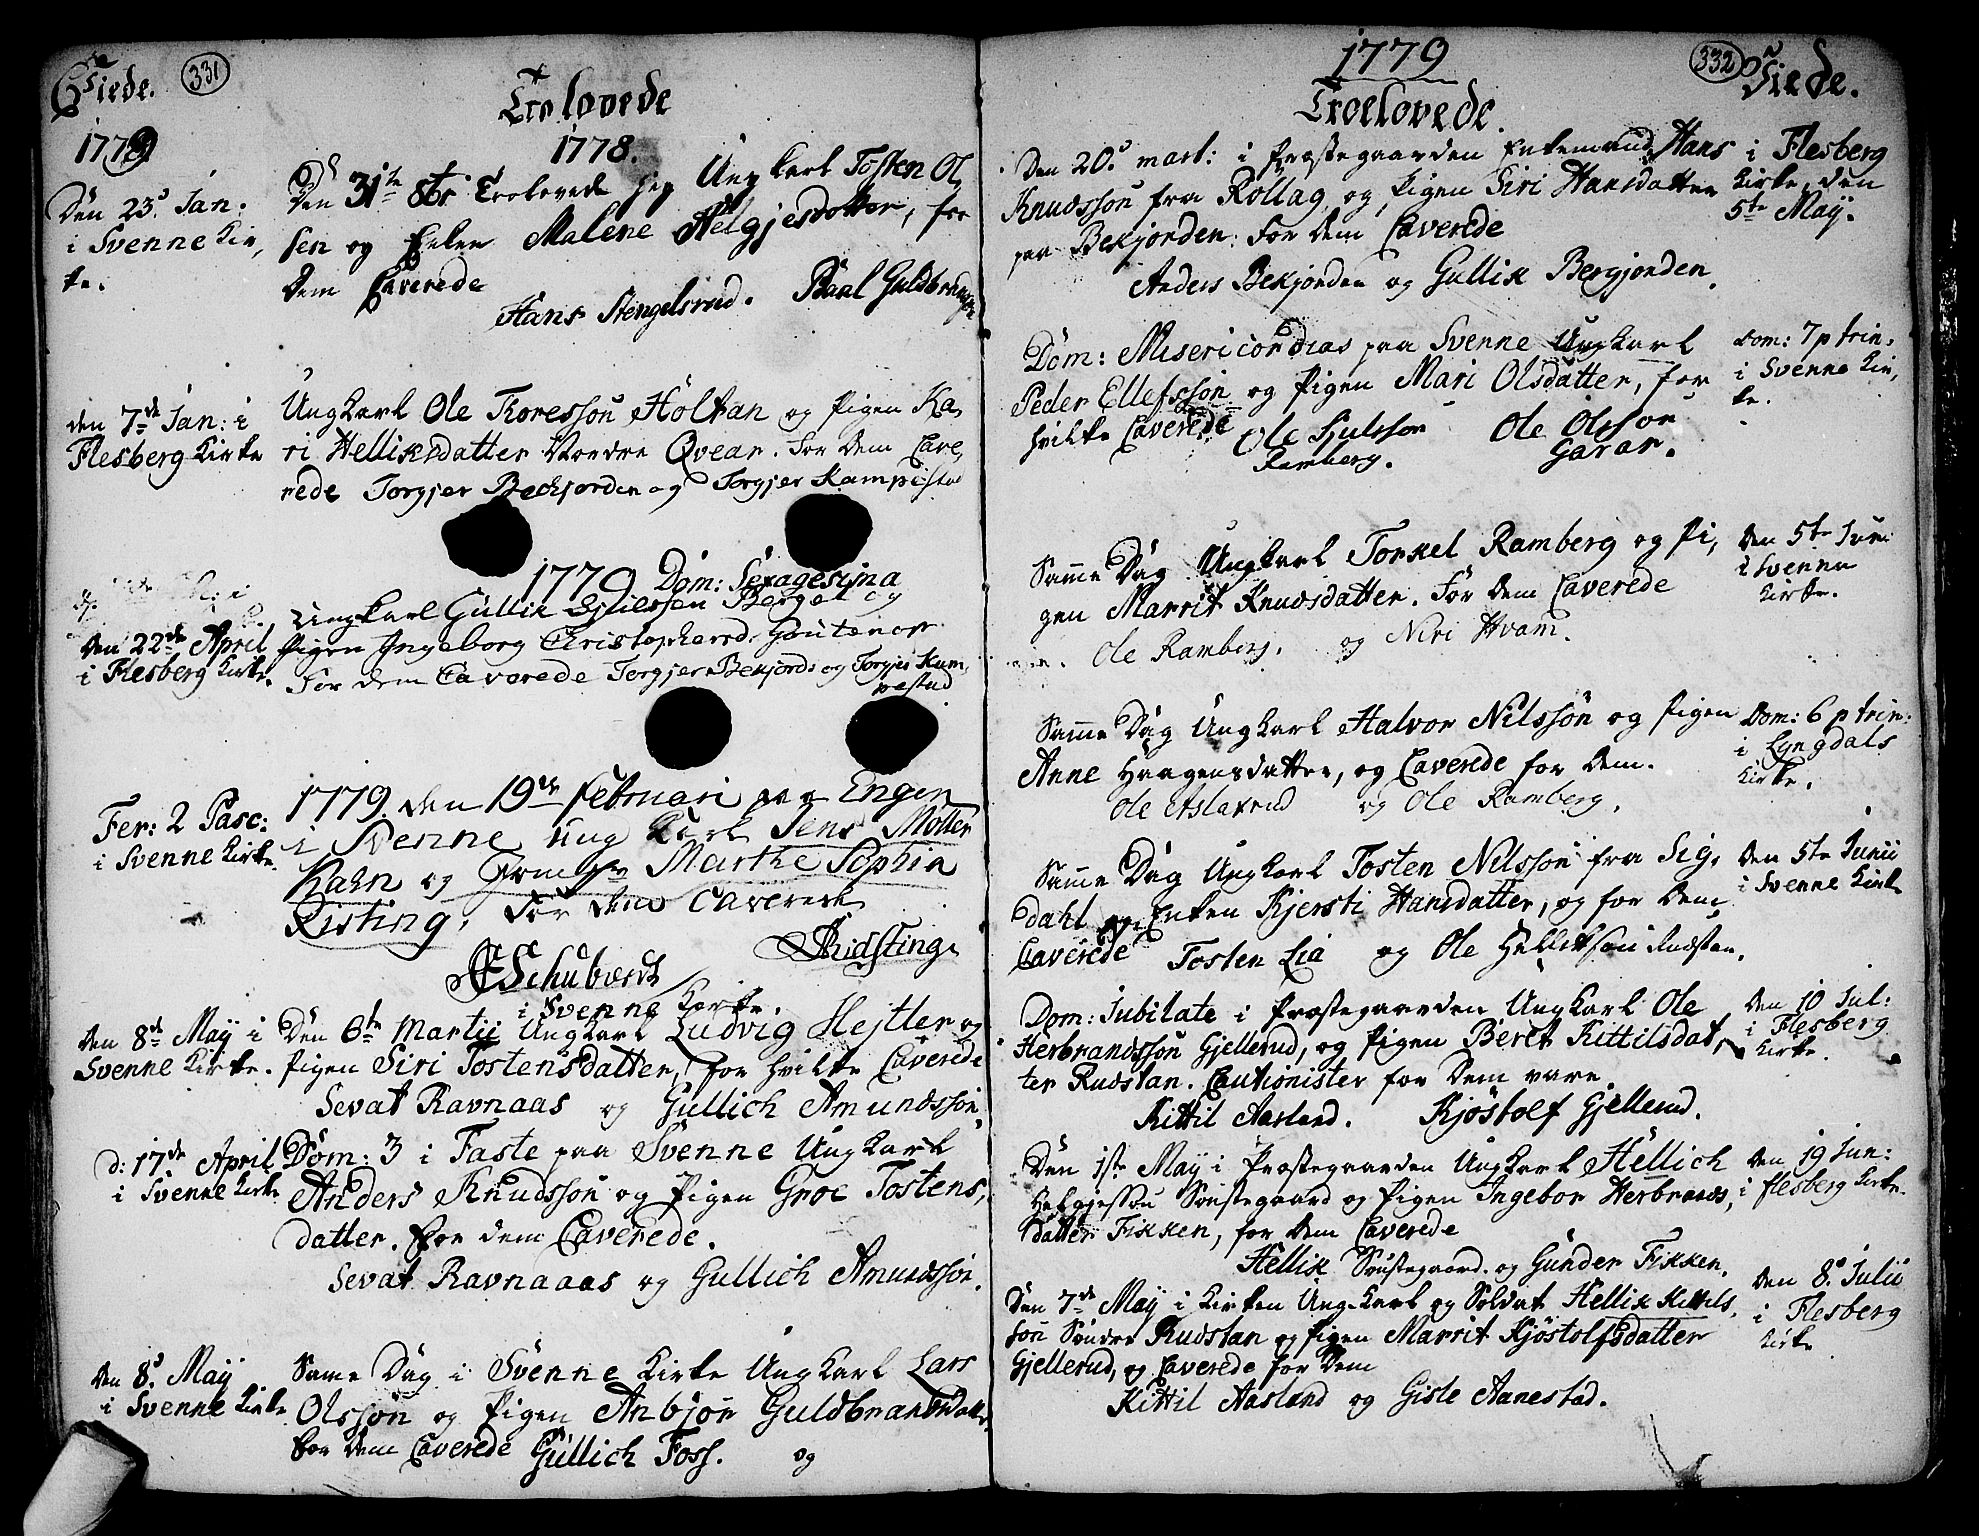 Viede.
331
Trolovede
1779
1778.
Den 23d Jan:
i Svenne Kir,
ke.
Den 31te 8br Trolovede jeg Ungkarl Tosten Ol
sen og Enken Malene Helgjesdotter, for
dem Caverede
Hans Stengelsrud. Paal Guldbrandsen
den 7de Jan: i
Flesberg Kirke
Ungkarl Ole Toresson Holtan og Pigen Ka
ri Helliksdatter Nordre Qvear. For dem Cave,
rede Torgjer Beckjorden og Torgjer Kampestad
1779 Dom: Sexagesima
Den 22de April
i Flesberg Kirke.
Ungkarl Gullik Berget og
Pigen Ingeborg Christophersd.
For dem Caverede Torgjer Bekjord og Torgjer Kam,
pestad
Fer: 2 Pasc:
i Svenne Kirke.
1779. den 19de Februari paa Engen
i Svenne ung Karl Jens Møller
Kahn og Marthe Sophia
Risting, For dem Caverede
Schubardt Ridsting.
i Svenne Kirke.
den 8de Maÿ i
Svenne Kirke.
Den 6te Martii Ungkarl Ludvig Hejtler og
Pigen Siri Tostensdatter, for hvilke Caverede
Sevat Ravnaas og Gullich Amundsson,
d: 17de April
i Svenne Kirke
Dom: 3 i Faste paa Svenne Ungkarl
Anders Knudsson og Pigen Groe Tostens,
datter. For dem Caverede.
Sevat Ravnaaas og Gullich Amundsson.
den 8d Maÿ
i Svenne Kirke
Same Dag i Svenne Kirke Ungkarl Lars
Olsson og Pigen Anbjør Guldbrandsdatter
for dem Caverede Gullich Foss. og
1779
332
Troelovede.
Viede.
Den 20d mart: i Præstegaarden Enkemand Hans
Knudsson fra Rollag og Pigen Siri Hansdatter
paa Bekjorden. For dem Caverede
Anders Bekjorden og Gullik Bergjorden.
i Flesberg
Kirke den
5te Maÿ.
Dom: Misericordias paa Svenne Ungkarl
Peder Ellefsson og Pigen Mari Olsdatter, for
hvilke Caverede Ole Sjulsson Ole Olsson
Ramberg. Garar.
Dom: 7 p trin.
i Svenne Kir,
ke.
Samme Dag Ungkarl Torkel Ramberg og Pi,
gen Marrit Knudsdatter. For dem Caverede
Ole Ramberg. og Niri Hvam.
den 5te Juni
i Svenne
Kirke.
Samme Dag Ungkarl Halvor Nilsson og Pigen
Anne Haagensdatter, og Caverede for dem.
Ole Aslaxrud og Ole Ramberg.
Dom: 6 p trin:
i Lyngdals
Kirke.
Samme Dag Ungkarl Tosten Nilsson fra Sig,
dahl og Enken Kjersti Hansdatter, og for dem
Caverede Tosten Lia og Ole Helliksson Rudstan.
den 5te Junii
i Svenne Kirke
Dom: Jubilate i Præstegaarden Ungkarl Ole
Herbrandsson Gjellerud, og Pigen Beret Kittilsdat,
ter Rudstan. Cautionister for dem vare
Kittil Aasland. Kjøstolf Gjellerud.
den 10 Jul:
i Flesberg
Kirke.
Den 1ste Maÿ i Præstegaarden Ungkarl Hellich
Helgjesson Søustegaard og Pigen Ingebor Herbrands,
datter Fikken, for dem Caverede
Hellik Søustegaard. og Gunder Fikken.
den 19 Jun:
i Flesberg Kirke.
Den 7de Maÿ i Kirken Ungkarl og Soldat Hellik Kittils,
son Søndre Rudstan og Pigen Marrit Kjøstolfsdatter
Gjellerud, og Caverede for dem
Kittil Aasland og Gisle Aanestad.
den 8d Julii
i Flesberg
Kirke